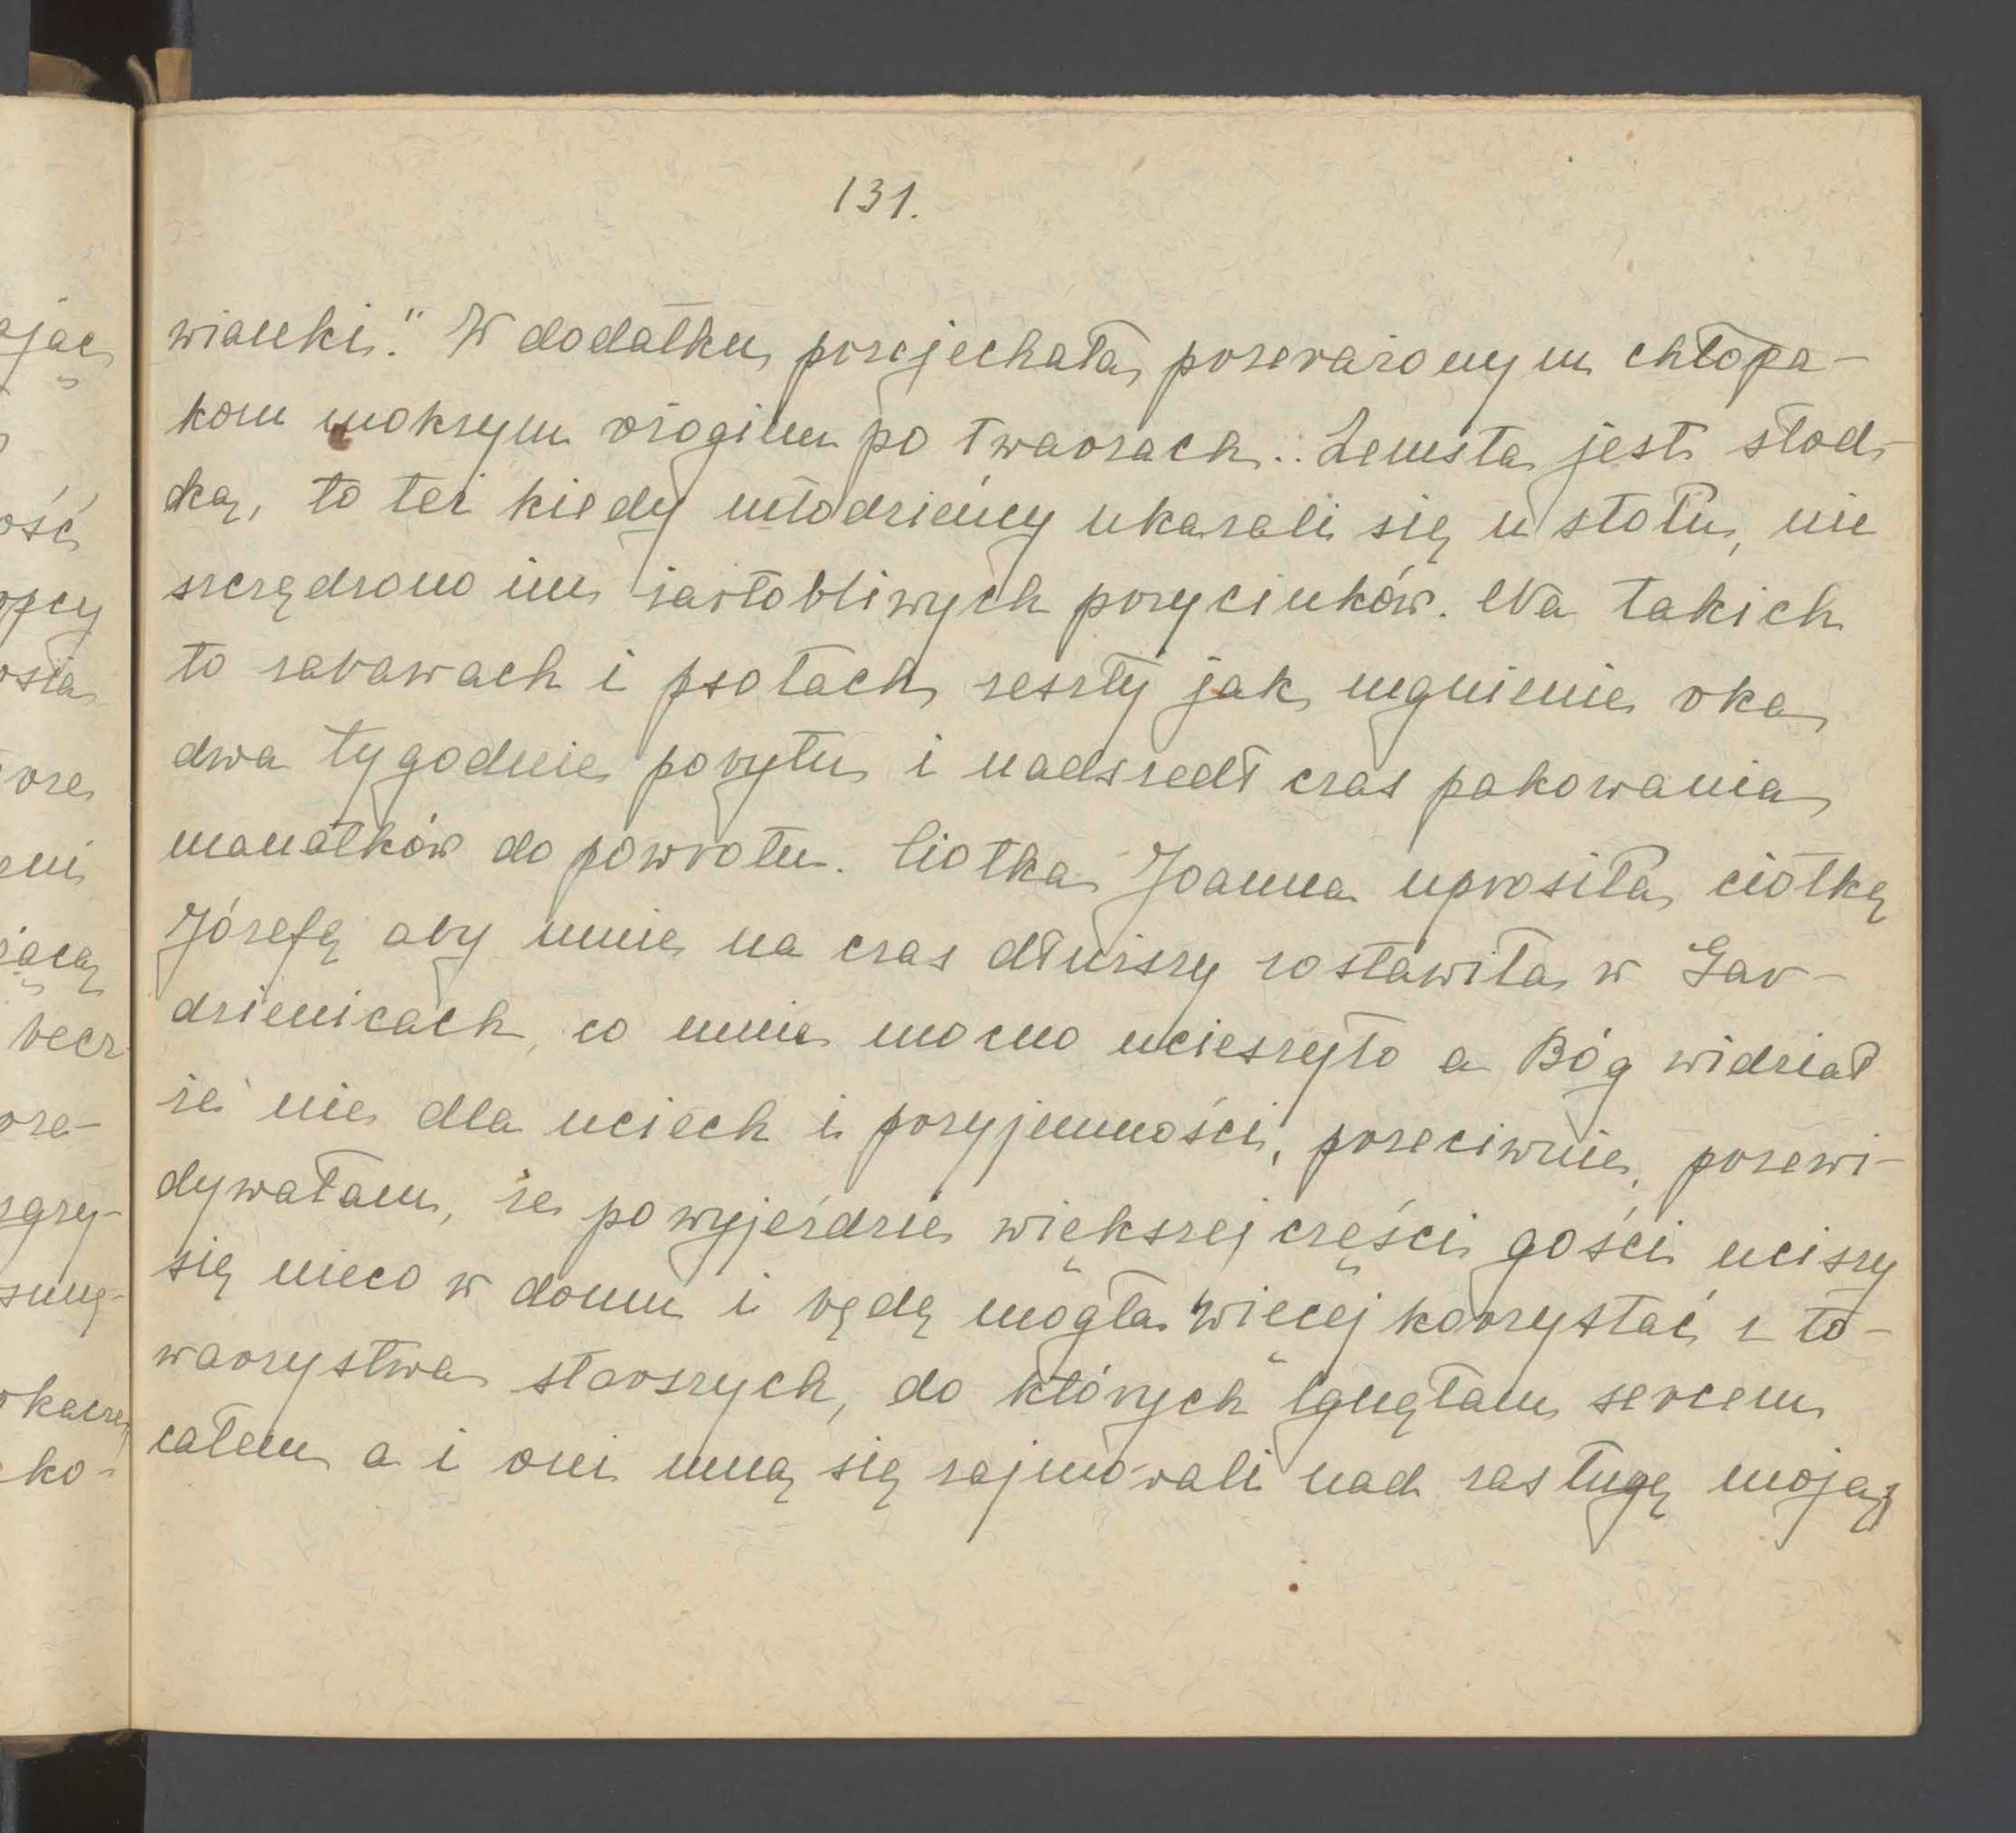 131.
wianki." W dodatku przejechała przerażonym chłopa-
kom mokrym ożogiem po twarzach.. Zemsta jest słod-
ką, to też kiedy młodzieńcy ukazali się u stołu, nie
szczędzono im żartobliwych przycinków. Na takich
to zabawach i psotach zeszły jak mgnienie oka
dwa tygodnie pobytu i nadszedł czas pakowania
manatków do powrotu. Ciotka Joanna uprosiła ciotkę
Józefę aby mnie na czas dłuższy zostawiła w Gar-
dzienicach, co mnie mocno ucieszyło a Bóg widział
że nie dla uciech i przyjemności, przeciwnie, przewi-
dywałam, że po wyjeździe większej części gości uciszy
się nieco w domu i będę mogła więcej korzystać z to-
warzystwa starszych, do których lgnęłam sercem
całem a i oni mną się zajmowali nad zasługę moją,
ając
ość
opcy
osła
orze
eni
jącą
becz
prze-
zgry-
sunę-
okazne
ko-